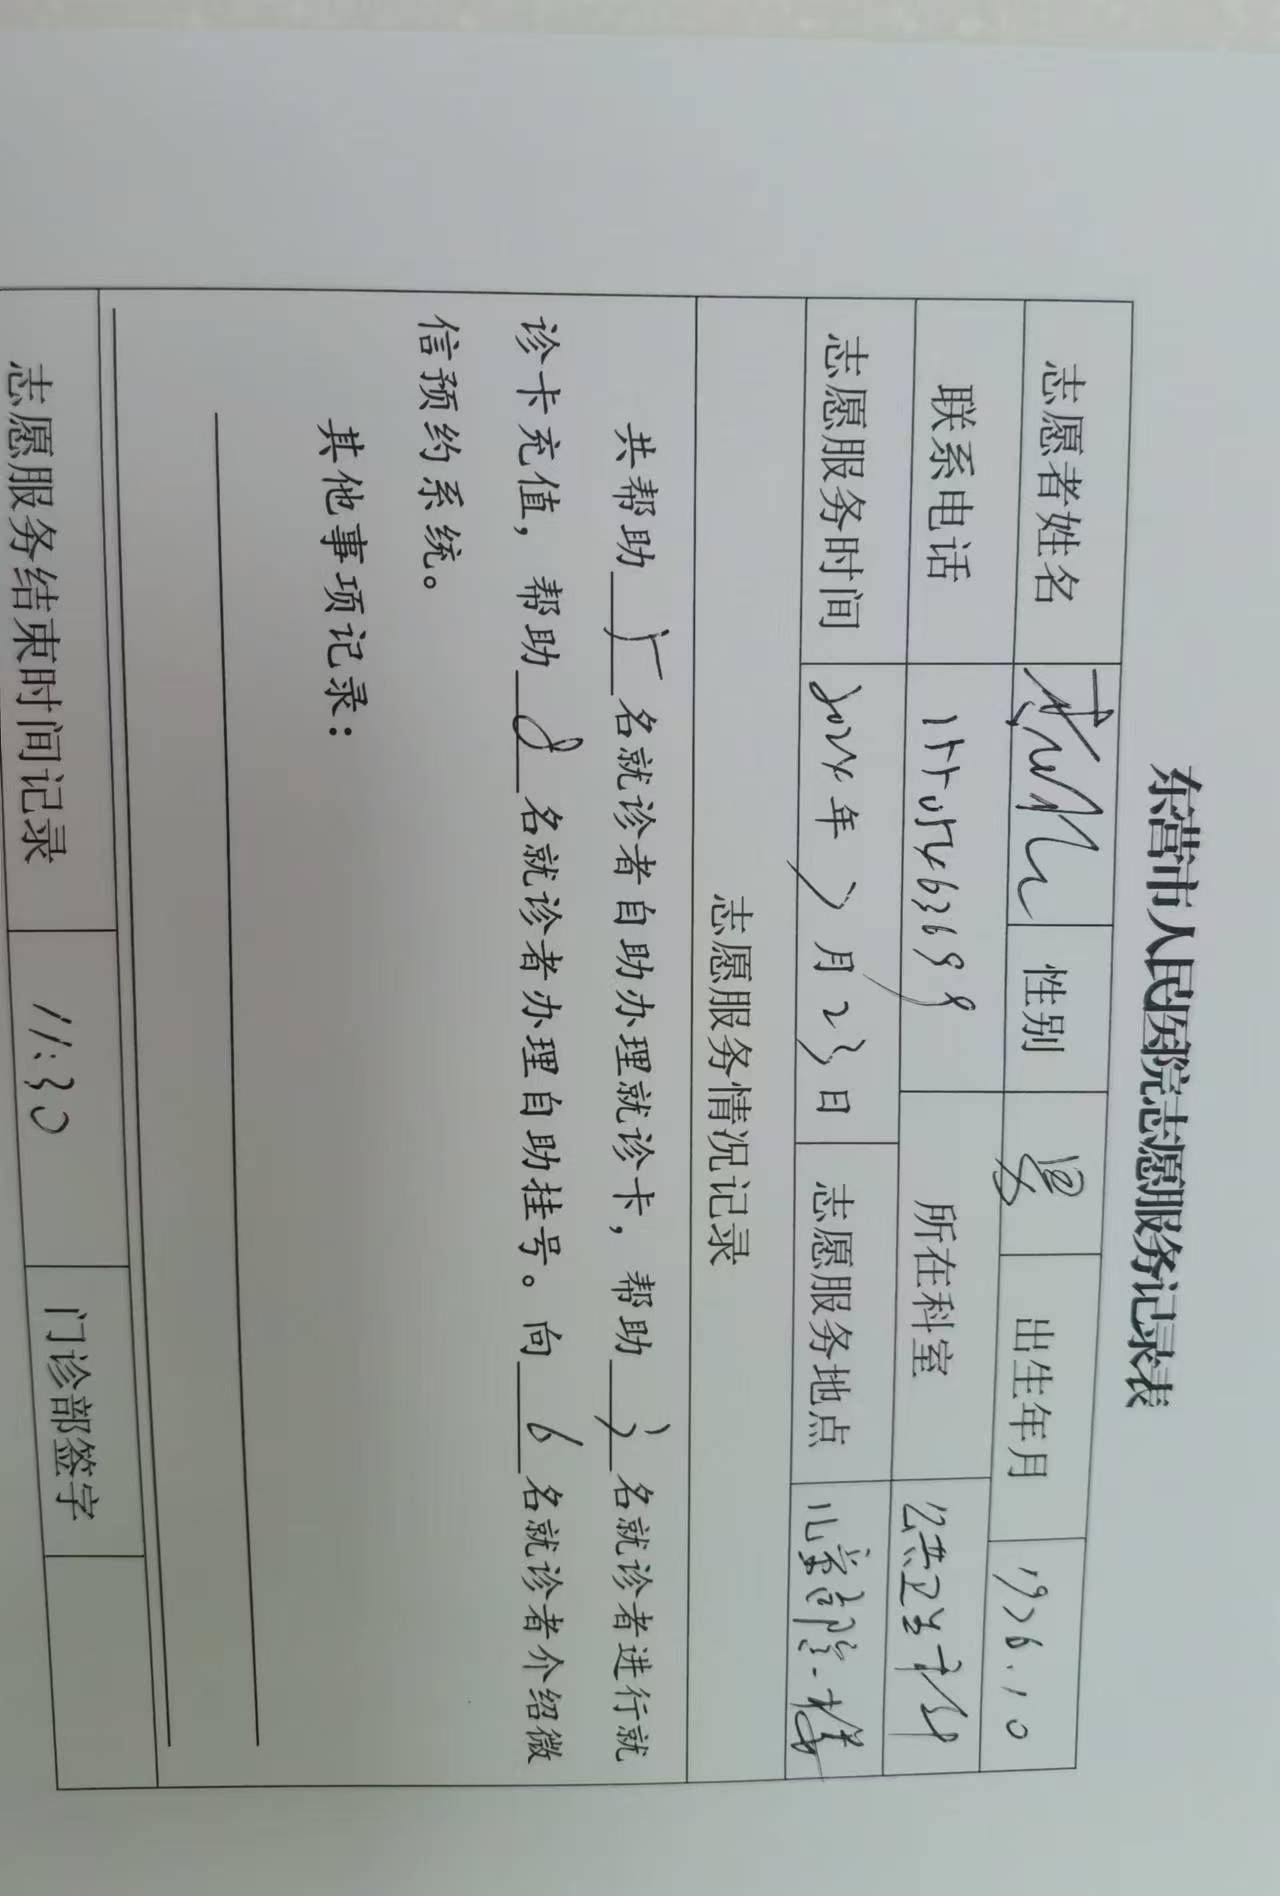 东营市人民医院志愿服务记录表
志愿者姓名 性别 男 出生年月 1976.10
联系电话 所在科室 公共卫生科
志愿服务时间 2024年 7月23日 志愿服务地点 儿童部院一楼
志愿服务情况记录
共帮助5名就诊者自助办理就诊卡，帮助3名就诊者进行就
诊卡充值，帮助8名就诊者办理自助挂号。向6名就诊者介绍微
信预约系统。
其他事项记录：
志愿服务结束时间记录 11:30 门诊部签字